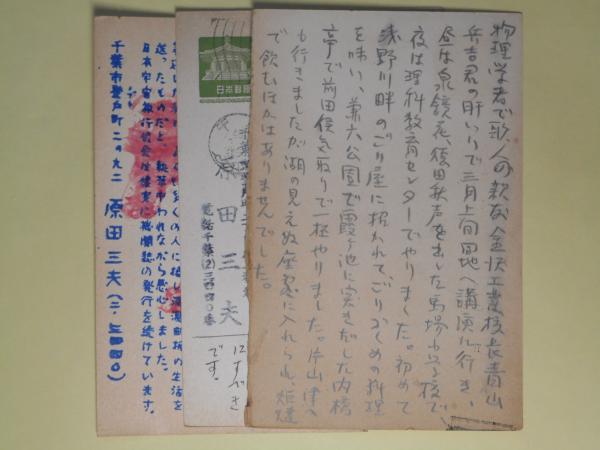 物理学者で歌人の親友金沢工業校長青山
兵吉君の肝いりで三月上旬同地へ講演に行き、
昼は泉鏡花、徳田秋声を出した馬場小学校で
夜は理科教育センターでやりました。初めて
浅野川畔のごり屋に招かれてごりづくめの料理
を味い、兼六公園で霞ヶ池に突きだした内橋
亭で前田侯気取りで一杯やりました。片山津へ
も行きましたが湖の見えぬ座敷に入れられ、炬燵
で飲むほかはありませんでした。
日本郵便
原田三夫
電話千葉(2)三四四〇番
にすべき
です。
の人に
の生活を
送ったものだと、
われながら感心しました。
日本宇宙旅行協会は
に機関誌の発行を続けています。
千葉市登戸町二ノ九二
原田三夫(二、三四四〇)